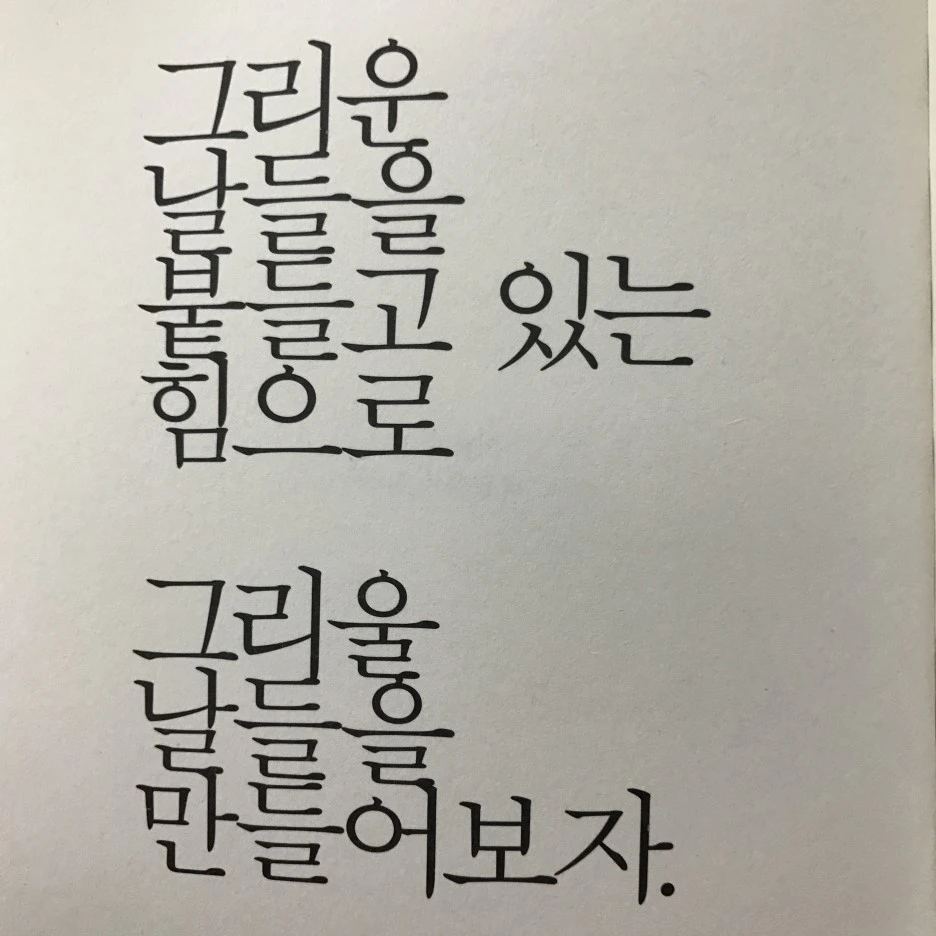 그리운
날들을
붙들고 있는
힘으로
그리울
날들을
만들어보자.